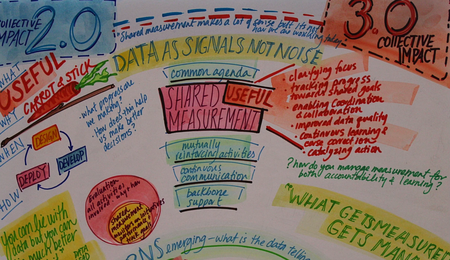 COLLECTIVE
IMPACT 2.0
3.0
COLLECTIVE
IMPACT
Shared measurement makes a lot of sense but it's
DATA AS SIGNALS NOT NOISE
WHAT
USEFUL
CARROT & STICK
WHY
- what progress are
we making?
- How does this help
us make better
decisions?
WHEN
DESIGN
DEVELOP
DEPLOY
HOW
common agenda
SHARED
MEASUREMENT
USEFUL
mutually
reinforcing activities
continuous
communication
backbone
support
- clarifying focus
- tracking progress
towards shared goals
- enabling coordination
& collaboration
- improved data quality
- continuous learning &
course corrections
- catalysing action
? how do you manage measurement for
both accountability & learning?
Evaluation
You can lie with
data but you can
much better
"WHAT GETS MEASURED
GETS
emerging - what is the data